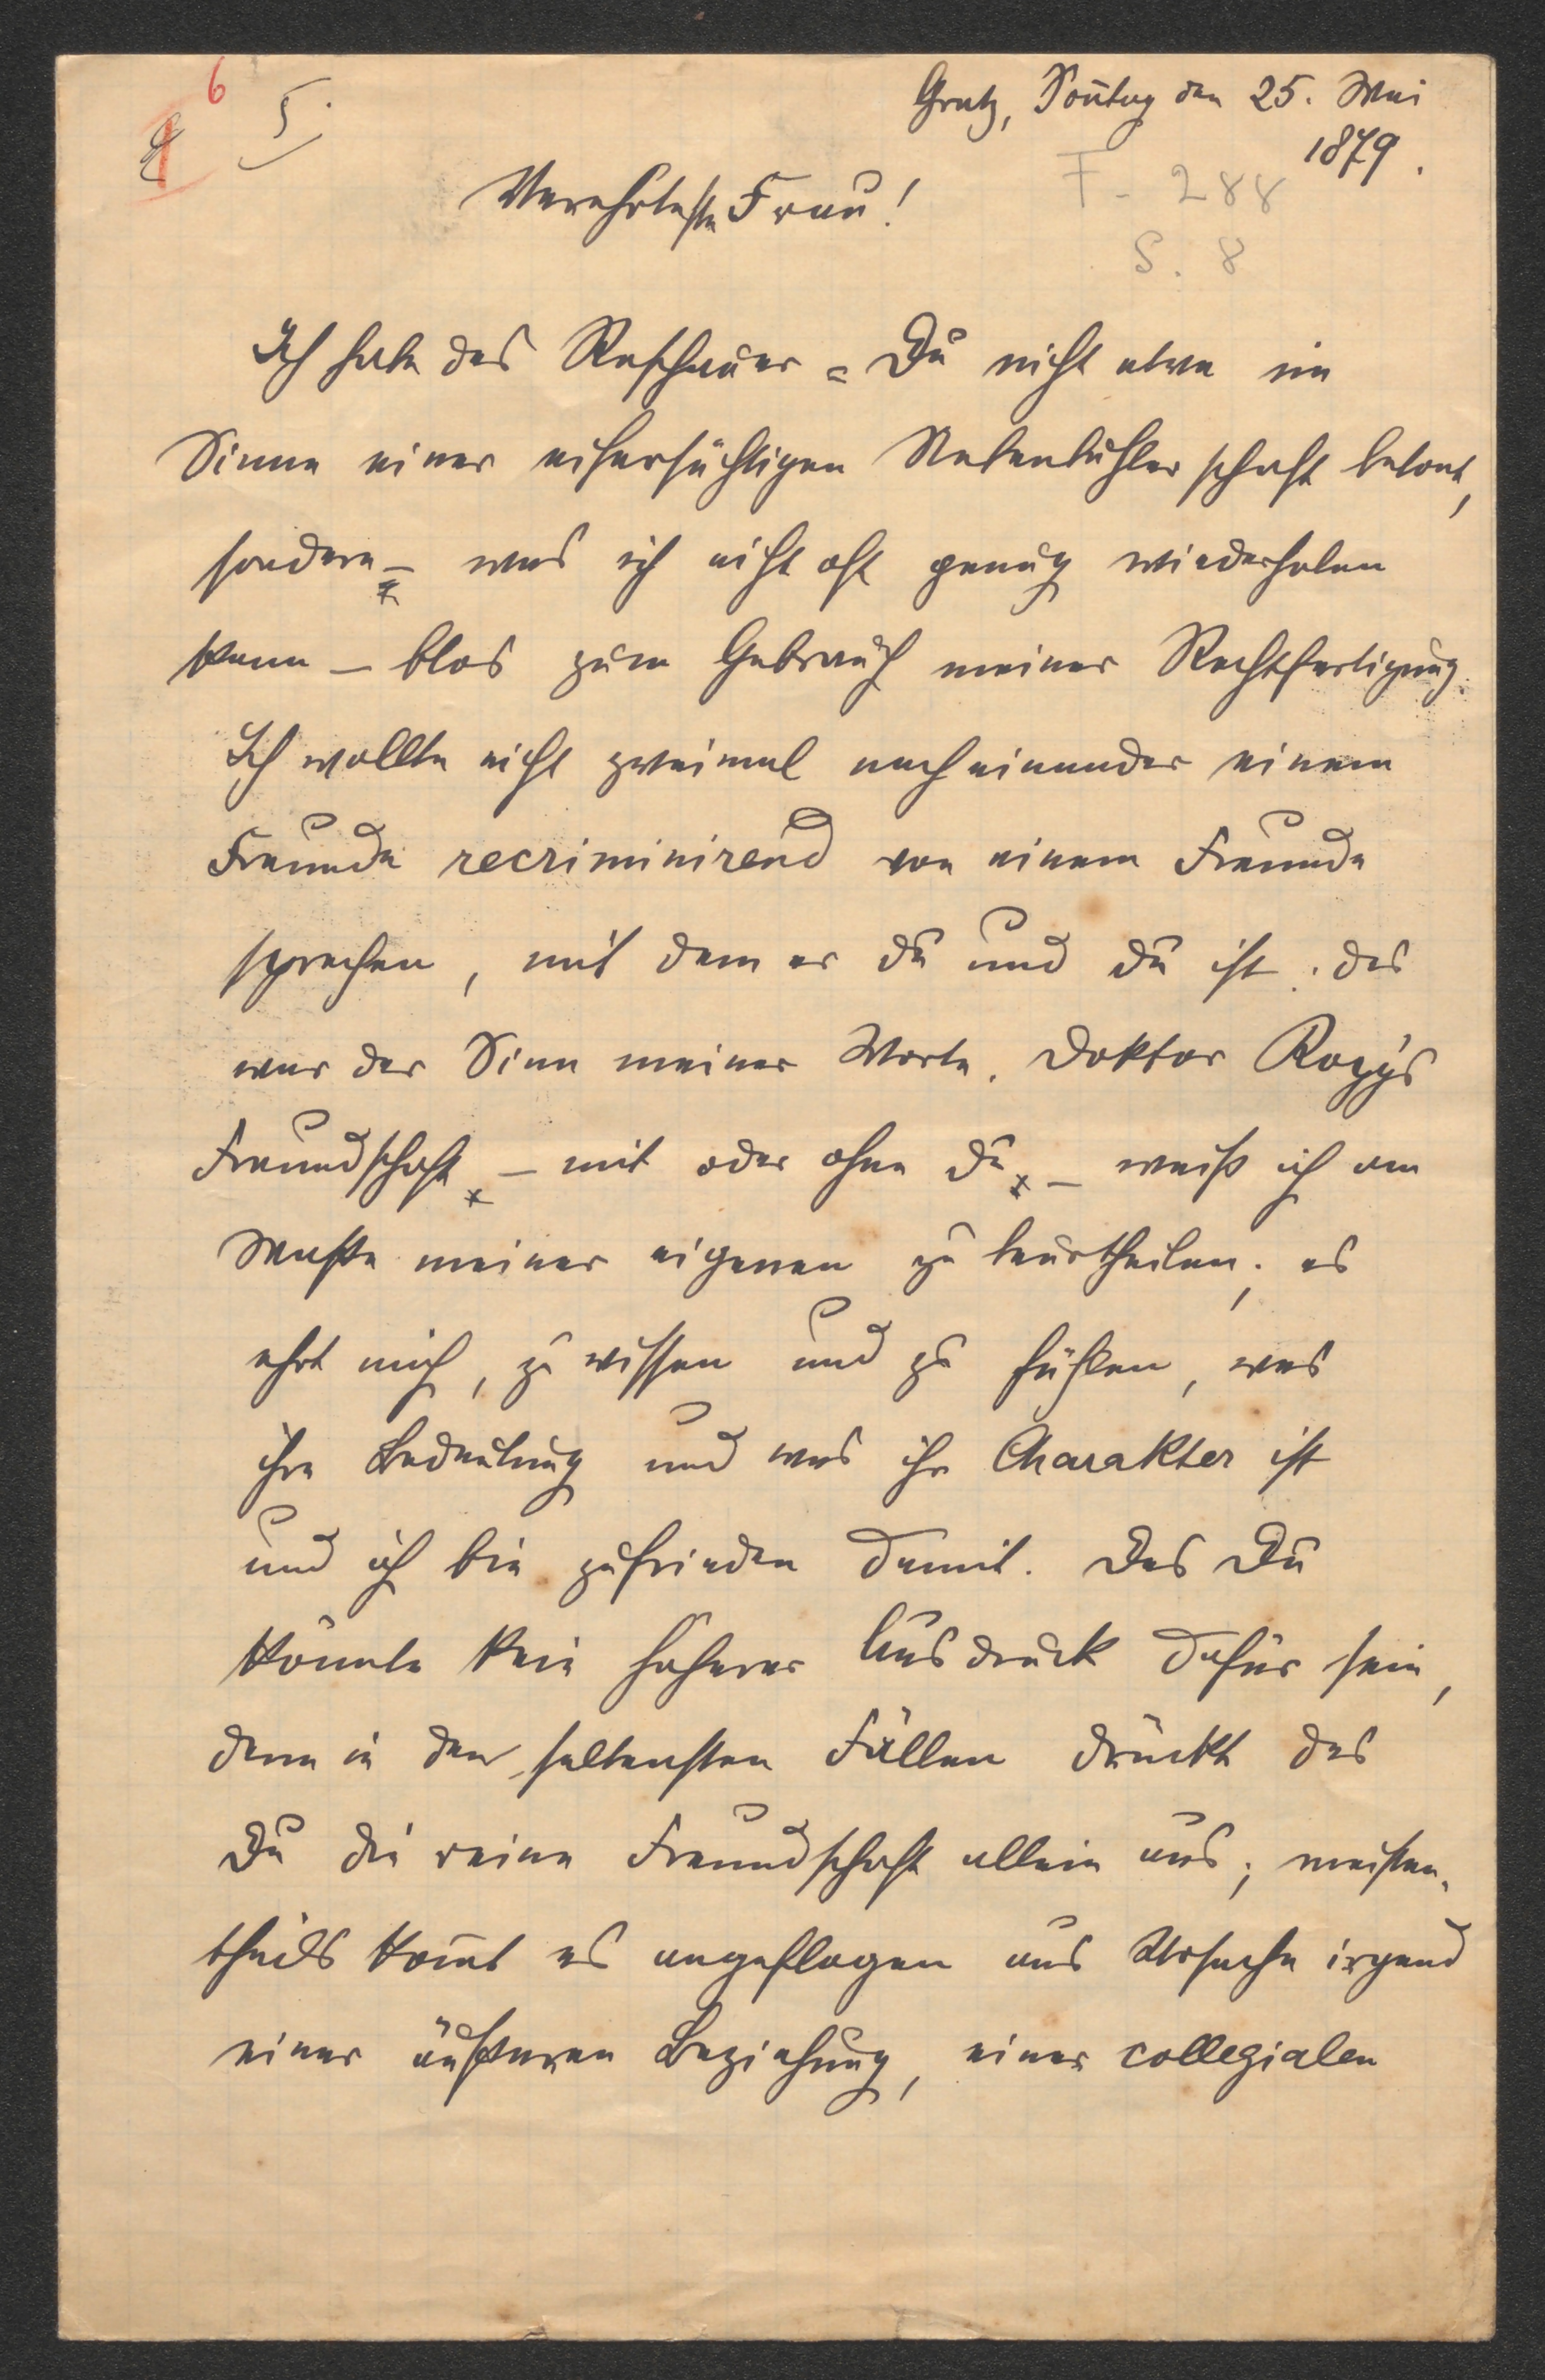 6
5.
Gratz, Soñtag den 25. Mai
1879.
F - 288
S. 8
Verehrteste Frau!
Ich habe das Reschauer = Du nicht etwa im
Sinne einer eifersüchtigen Nebenbuhlerschaft betont,
sondern – was ich nicht oft genug wiederholen
kann – blos zum Gebrauch meiner Rechtfertigung.
Ich wollte nicht zweimal nacheinander einem
Freunde recriminirend von einem Freunde
sprechen, mit dem er du und du ist: das
war der Sinn meiner Worte. Doktor
Freundschaft – mit oder ohne Du – weiß ich am
Maße meiner eigenen zu beurtheilen; es
ehrt mich, zu wissen und zu fühlen, was
ihre Bedeutung und was ihr Charakter ist
und ich bin zufrieden damit. Das Du
könnte kein höherer Ausdruck dafür sein,
denn in den seltensten Fällen drückt das
Du die reine Freundschaft allein aus; meisten-
theils kom̄t es angeflogen aus Ursache irgend
einer äußeren Beziehung, einer collegialen